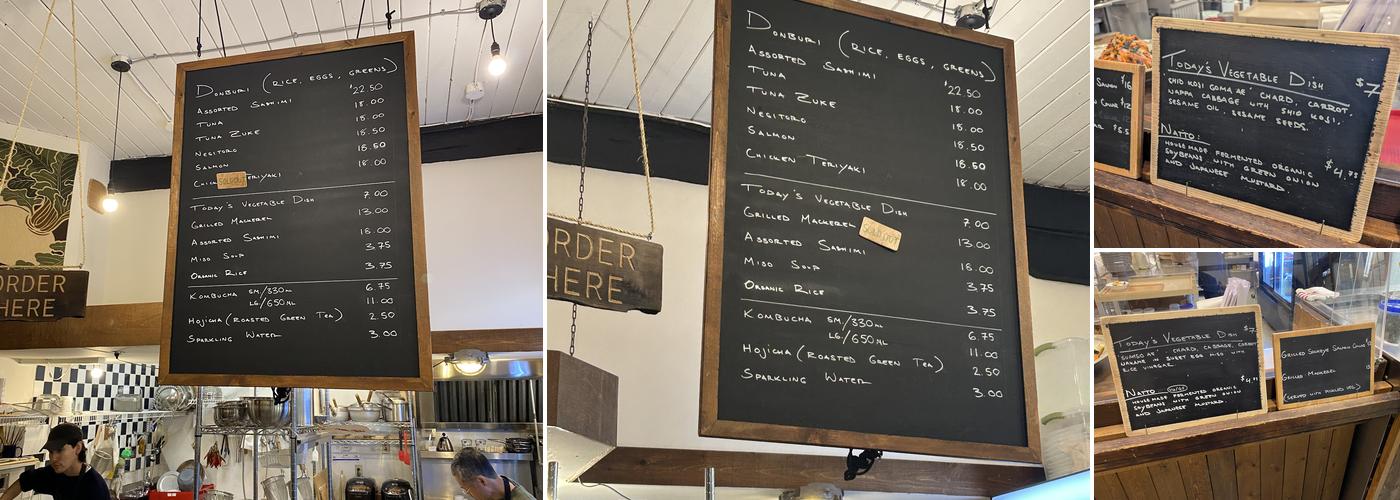 DONBURI (RICE, EGGS, GREENS)
ASSORTED SASHIMI $22.50
TUNA 18.00
TUNA ZUKE 18.00
NEGITORO 18.50
SALMON 18.50
CHICKEN TERIYAKI 18.00
SOLD OUT
TODAY'S VEGETABLE DISH 7.00
GRILLED MACKEREL 13.00
ASSORTED SASHIMI 18.00
MISO SOUP 3.75
ORGANIC RICE 3.75
KOMBUCHA SM/330ML 6.75
LG/650ML 11.00
HOJICHA (ROASTED GREEN TEA) 2.50
SPARKLING WATER 3.00
ORDER
HERE
DONBURI (RICE, EGGS, GREENS)
ASSORTED SASHIMI $22.50
TUNA 18.00
TUNA ZUKE 18.00
NEGITORO 18.50
SALMON 18.50
CHICKEN TERIYAKI 18.00
TODAY'S VEGETABLE DISH 7.00
GRILLED MACKEREL 13.00
SOLD OUT
ASSORTED SASHIMI 18.00
MISO SOUP 3.75
ORGANIC RICE 3.75
KOMBUCHA SM/330ML 6.75
LG/650ML 11.00
HOJICHA (ROASTED GREEN TEA) 2.50
SPARKLING WATER 3.00
ORDER
HERE
TODAY'S VEGETABLE DISH $7
SHIO KOJI GOMA AE CHARD, CARROT,
NAPPA CABBAGE WITH SHIO KOJI,
SESAME OIL, SESAME SEEDS.
NATTO:
HOUSE MADE FERMENTED ORGANIC $4.75
SOYBEANS WITH GREEN ONION
AND JAPANESE MUSTARD.
TODAY'S VEGETABLE DISH $7
CHARD, CABBAGE, CARROT,
WAKAME IN SWEET EGG MISO WITH
RICE VINEGAR.
NATTO
HOUSE MADE FERMENTED ORGANIC
SOYBEANS WITH GREEN ONION
AND JAPANESE MUSTARD.
GRILLED SOCKEYE SALMON COLLAR
GRILLED MACKEREL
(SERVED WITH PICKLED VEG.)